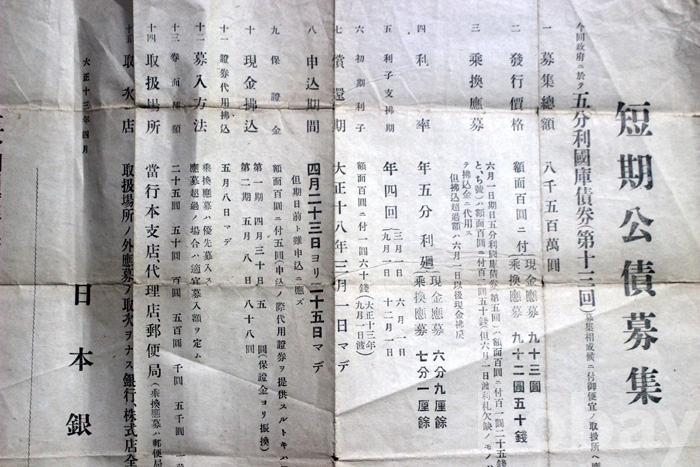 短期公債募集
今回政府ニ於テ五分利國庫債券(第十三回)募集相成候ニ付御便宜ノ取扱所ヘ應
一 募集總額 八千五百萬圓
二 發行價格 額面百圓ニ付 (現金應募 九十三圓
乘換應募 九十二圓五十錢
三 乘換應募 六月一日期日五分利國庫債券
ヲ拂込金ニ代用ス
但拂込超過額ハ六月一日以後現金拂戾
四 利率 年五分 利廻 (現金應募 六分九厘餘
乘換應募 七分一厘餘
五 利子支拂期 年四回 (三月一日 六月一日
九月一日 十二月一日
六 初期利子 額面百圓ニ付一圓六十錢 (大正十三年
九月一日渡)
七 償還期 大正十八年三月一日マデ
八 申込期間 四月二十三日ヨリ二十五日マデ
但期日前ト雖申込ニ應ズ
九 保證金 額面百圓ニ付五圓申込ノ際代用證券ヲ提供スルトキハ
十 現金拂込 第一期 四月三十日 五圓(保證金ヨリ振換)
第二期 五月八日 八十八圓
十一 證券代用拂込 五月八日マデ
十二 募入方法 乘換應募ハ優先募入ス
應募超過ノ場合ハ適宜募入額ヲ定ム
十三 券面種類 二十五圓 五十圓 百圓 五百圓 千圓 五千圓 一
十四 取扱場所 當行本支店、代理店、郵便局(乘換應募ハ郵便局
十五 取次店 取扱場所ノ外應募ノ取次ヲナス銀行、株式店全
大正十三年四月
日本銀